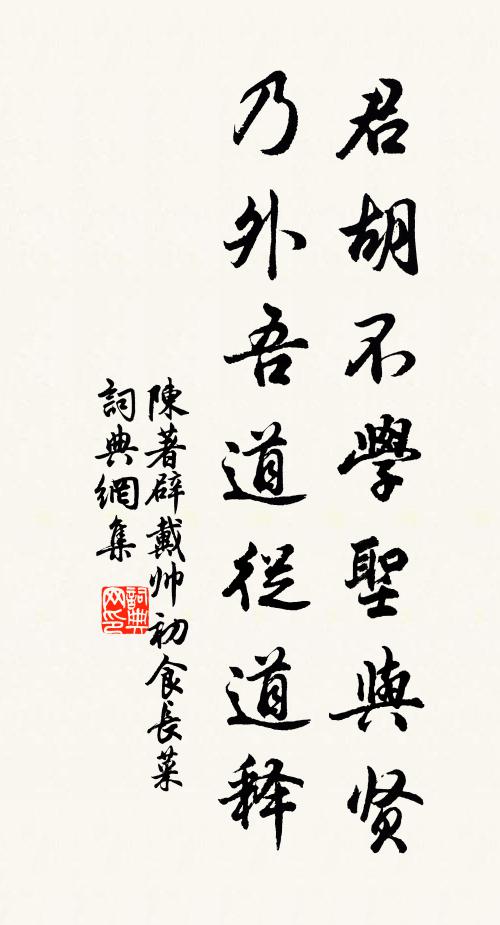 君胡不學聖與贤
乃外吾道從道释
陳著辟戴帅初食長菜
詞典網集
詞典网印